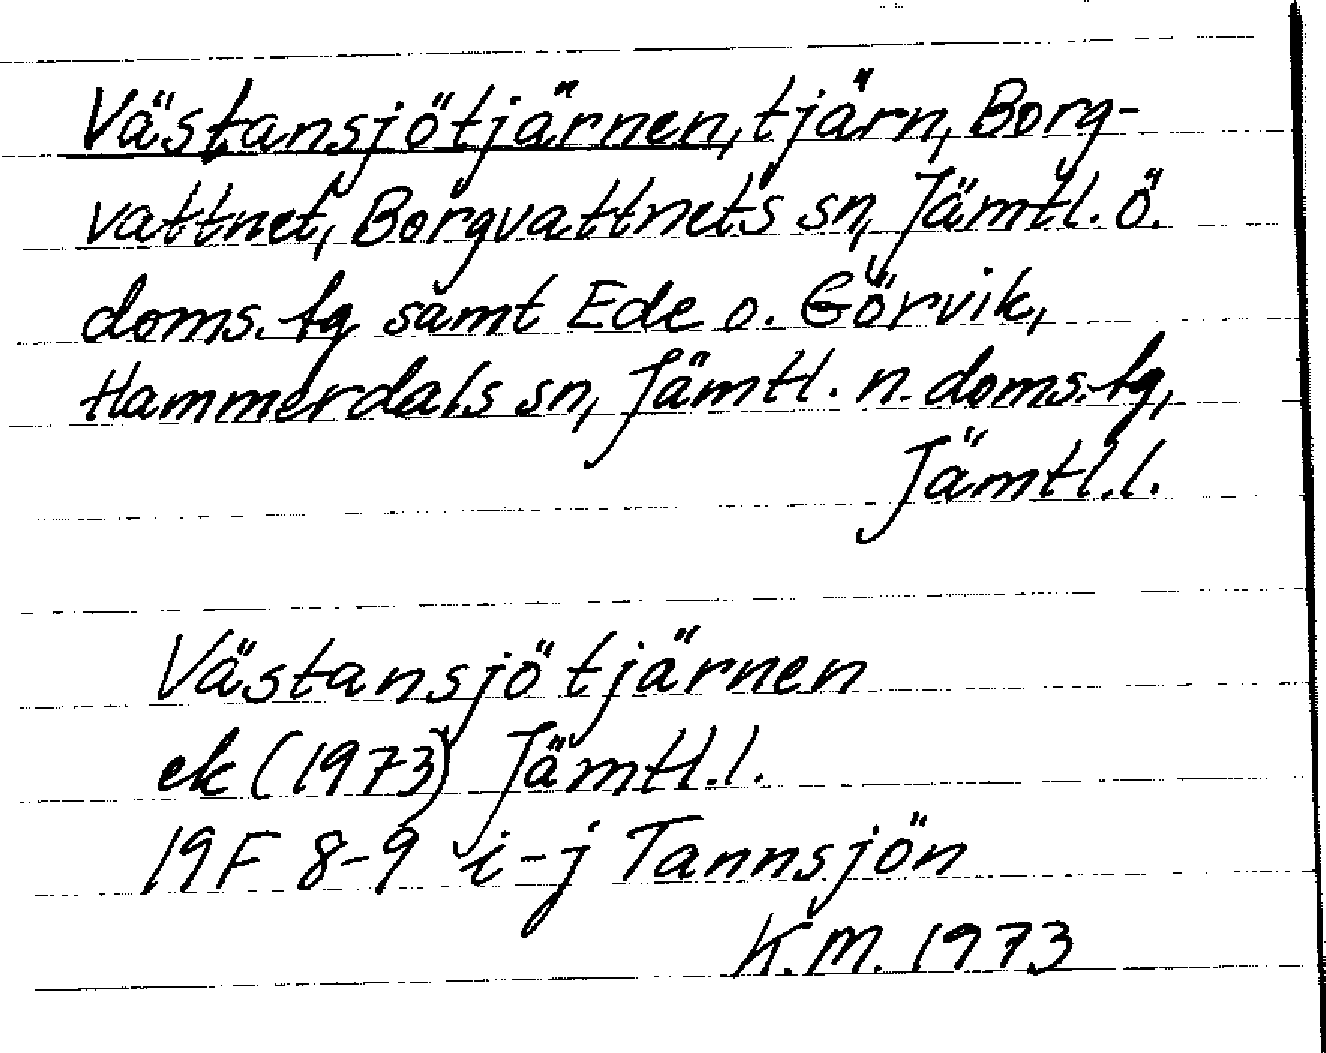 Västansjötjärnen, tjärn, Borg-
vattnet, Borgvattnets sn, Jämtl. ö.
doms. tg samt Ede o. Görvik,
Hammerdals sn, Jämtl. n. doms. tg,
Jämtl. l.
Västansjötjärnen
ek (1973) Jämtl. l.
19F 8-9 i-j Tannsjön
K.M. 1973